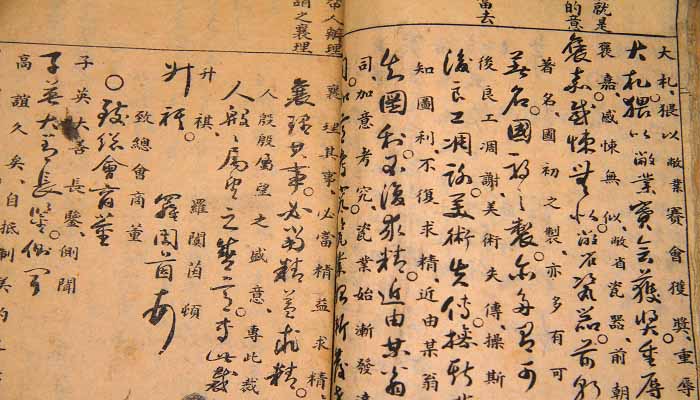 就是
的意
當去
大札猥以敝業賽會獲獎重辱
大札猥以敝業賽會獲獎重辱
褒嘉感悚無似敝省瓷器前朝
褒嘉感悚無似敝省瓷器前朝
著名國初之製亦多有可
著名國初之製亦多有可
後良工凋謝美術失傳操斯
後良工凋謝美術失傳操斯
知圖利不復求精近由某翁
知圖利不復求精近由某翁
司加意考究瓷業始漸發達
司加意考究瓷業始漸發達
人辦理
謂之襄理
襄理其事必當精益求精
襄理其事必當精益求精
人殷殷屬望之盛意專此裁
人殷殷屬望之盛意專此裁
升祺 羅闓茵頓
升祺 羅闓茵頓
致總會商董
○致總會商董
子英大善長鑒側聞
子英大善長鑒側聞
高誼久矣自抵制美約